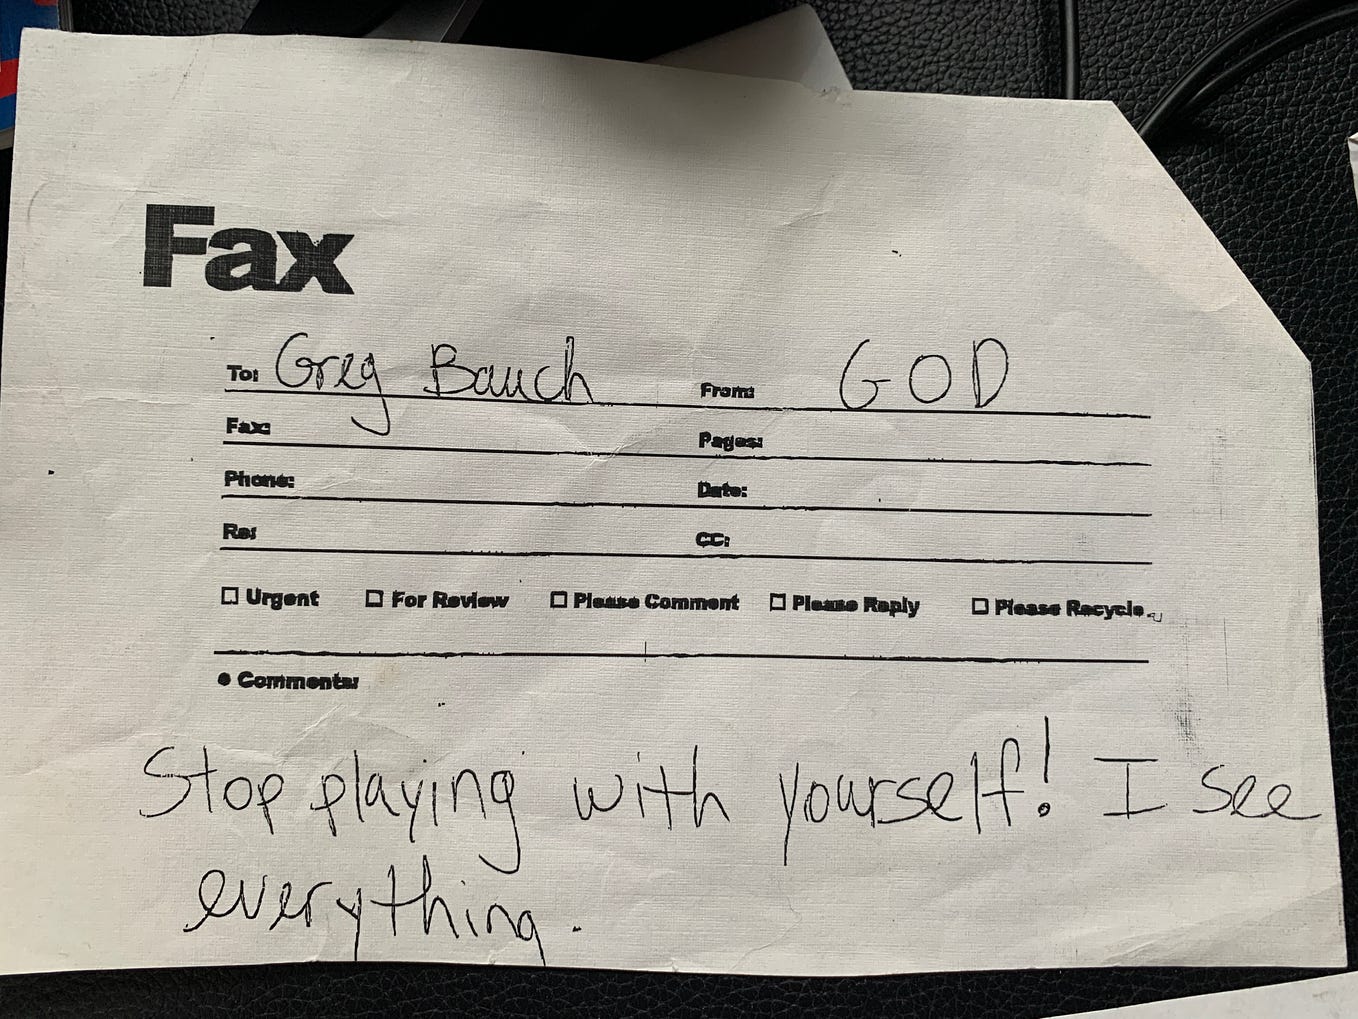 Fax
To: Greg Bauch From: GOD
Fax: Pages:
Phone: Date:
Re: CC:
☐ Urgent ☐ For Review ☐ Please Comment ☐ Please Reply ☐ Please Recycle
● Comments:
Stop playing with yourself! I see
everything.